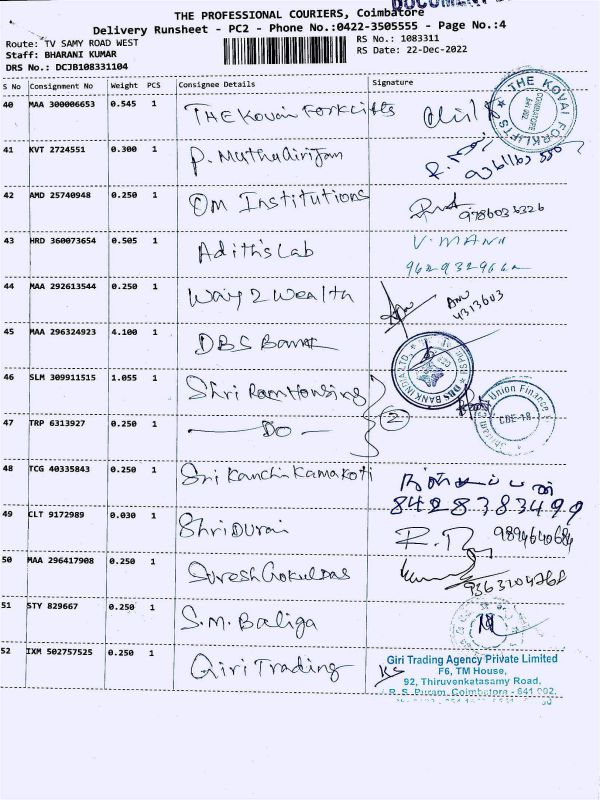 DOCUMENT
THE PROFESSIONAL COURIERS, Coimbatore
Delivery Runsheet - PC2 - Phone No.:0422-3505555 - Page No.:4
Route: TV SAMY ROAD WEST
RS No.: 1083311
Staff: BHARANI KUMAR
RS Date: 22-Dec-2022
DRS No.: DCJB108331104
S No Consignment No Weight PCS Consignee Details Signature
40 MAA 300006653 0.545 1 THE Kovai Forklifts
THE KOVAI FORKLIFTS
COIMBATORE
41 KVT 2724551 0.300 1 P. Muthugirijam
42 AMD 25740948 0.250 1 Om Institutions
9786036326
43 HRD 360073654 0.505 1 Adith's Lab V. MANI
44 MAA 292613544 0.250 1 Way 2 Wealth
4313603
45 MAA 296324923 4.100 1 DBS Bank
DBS BANK INDIA LTD.
46 SLM 309911515 1.055 1 Shri Ram Housing
2
Union Finance
CBE-18
47 TRP 6313927 0.250 1 — DO —
48 TCG 40335843 0.250 1 Sri Kanchi Kamakoti
8428383499
49 CLT 9172989 0.030 1 Shri Durai
9894640684
50 MAA 296417908 0.250 1 Suresh Gokuldas
9363204768
51 STY 829667 0.250 1 S.M. Baliga
52 IXM 502757525 0.250 1 Giri Trading
Giri Trading Agency Private Limited
F6, TM House,
92, Thiruvenkatasamy Road,
R.S. Puram, Coimbatore - 641 002.